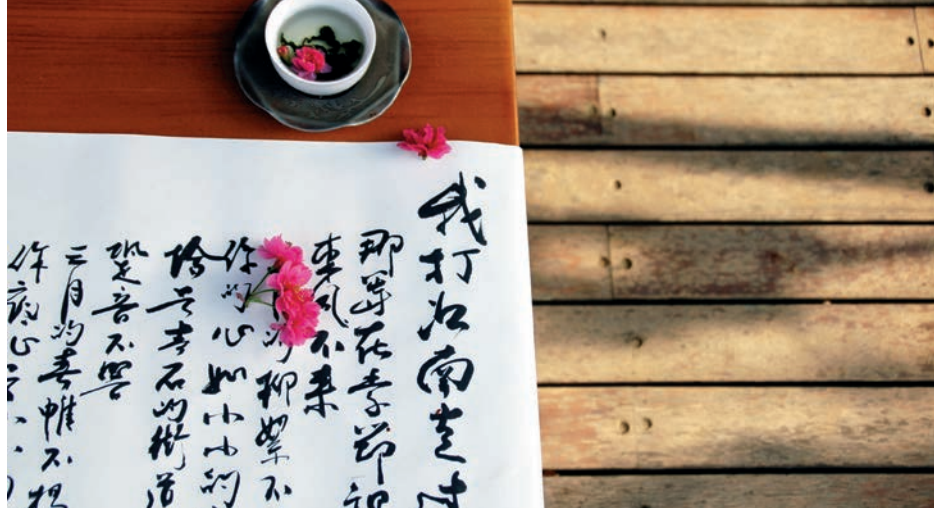 我打江南走过
那等在季節
東风不来
的柳絮不
你的心如小小的
恰若青石的街道
跫音不響
三月的春帷不揭
你底心是小小